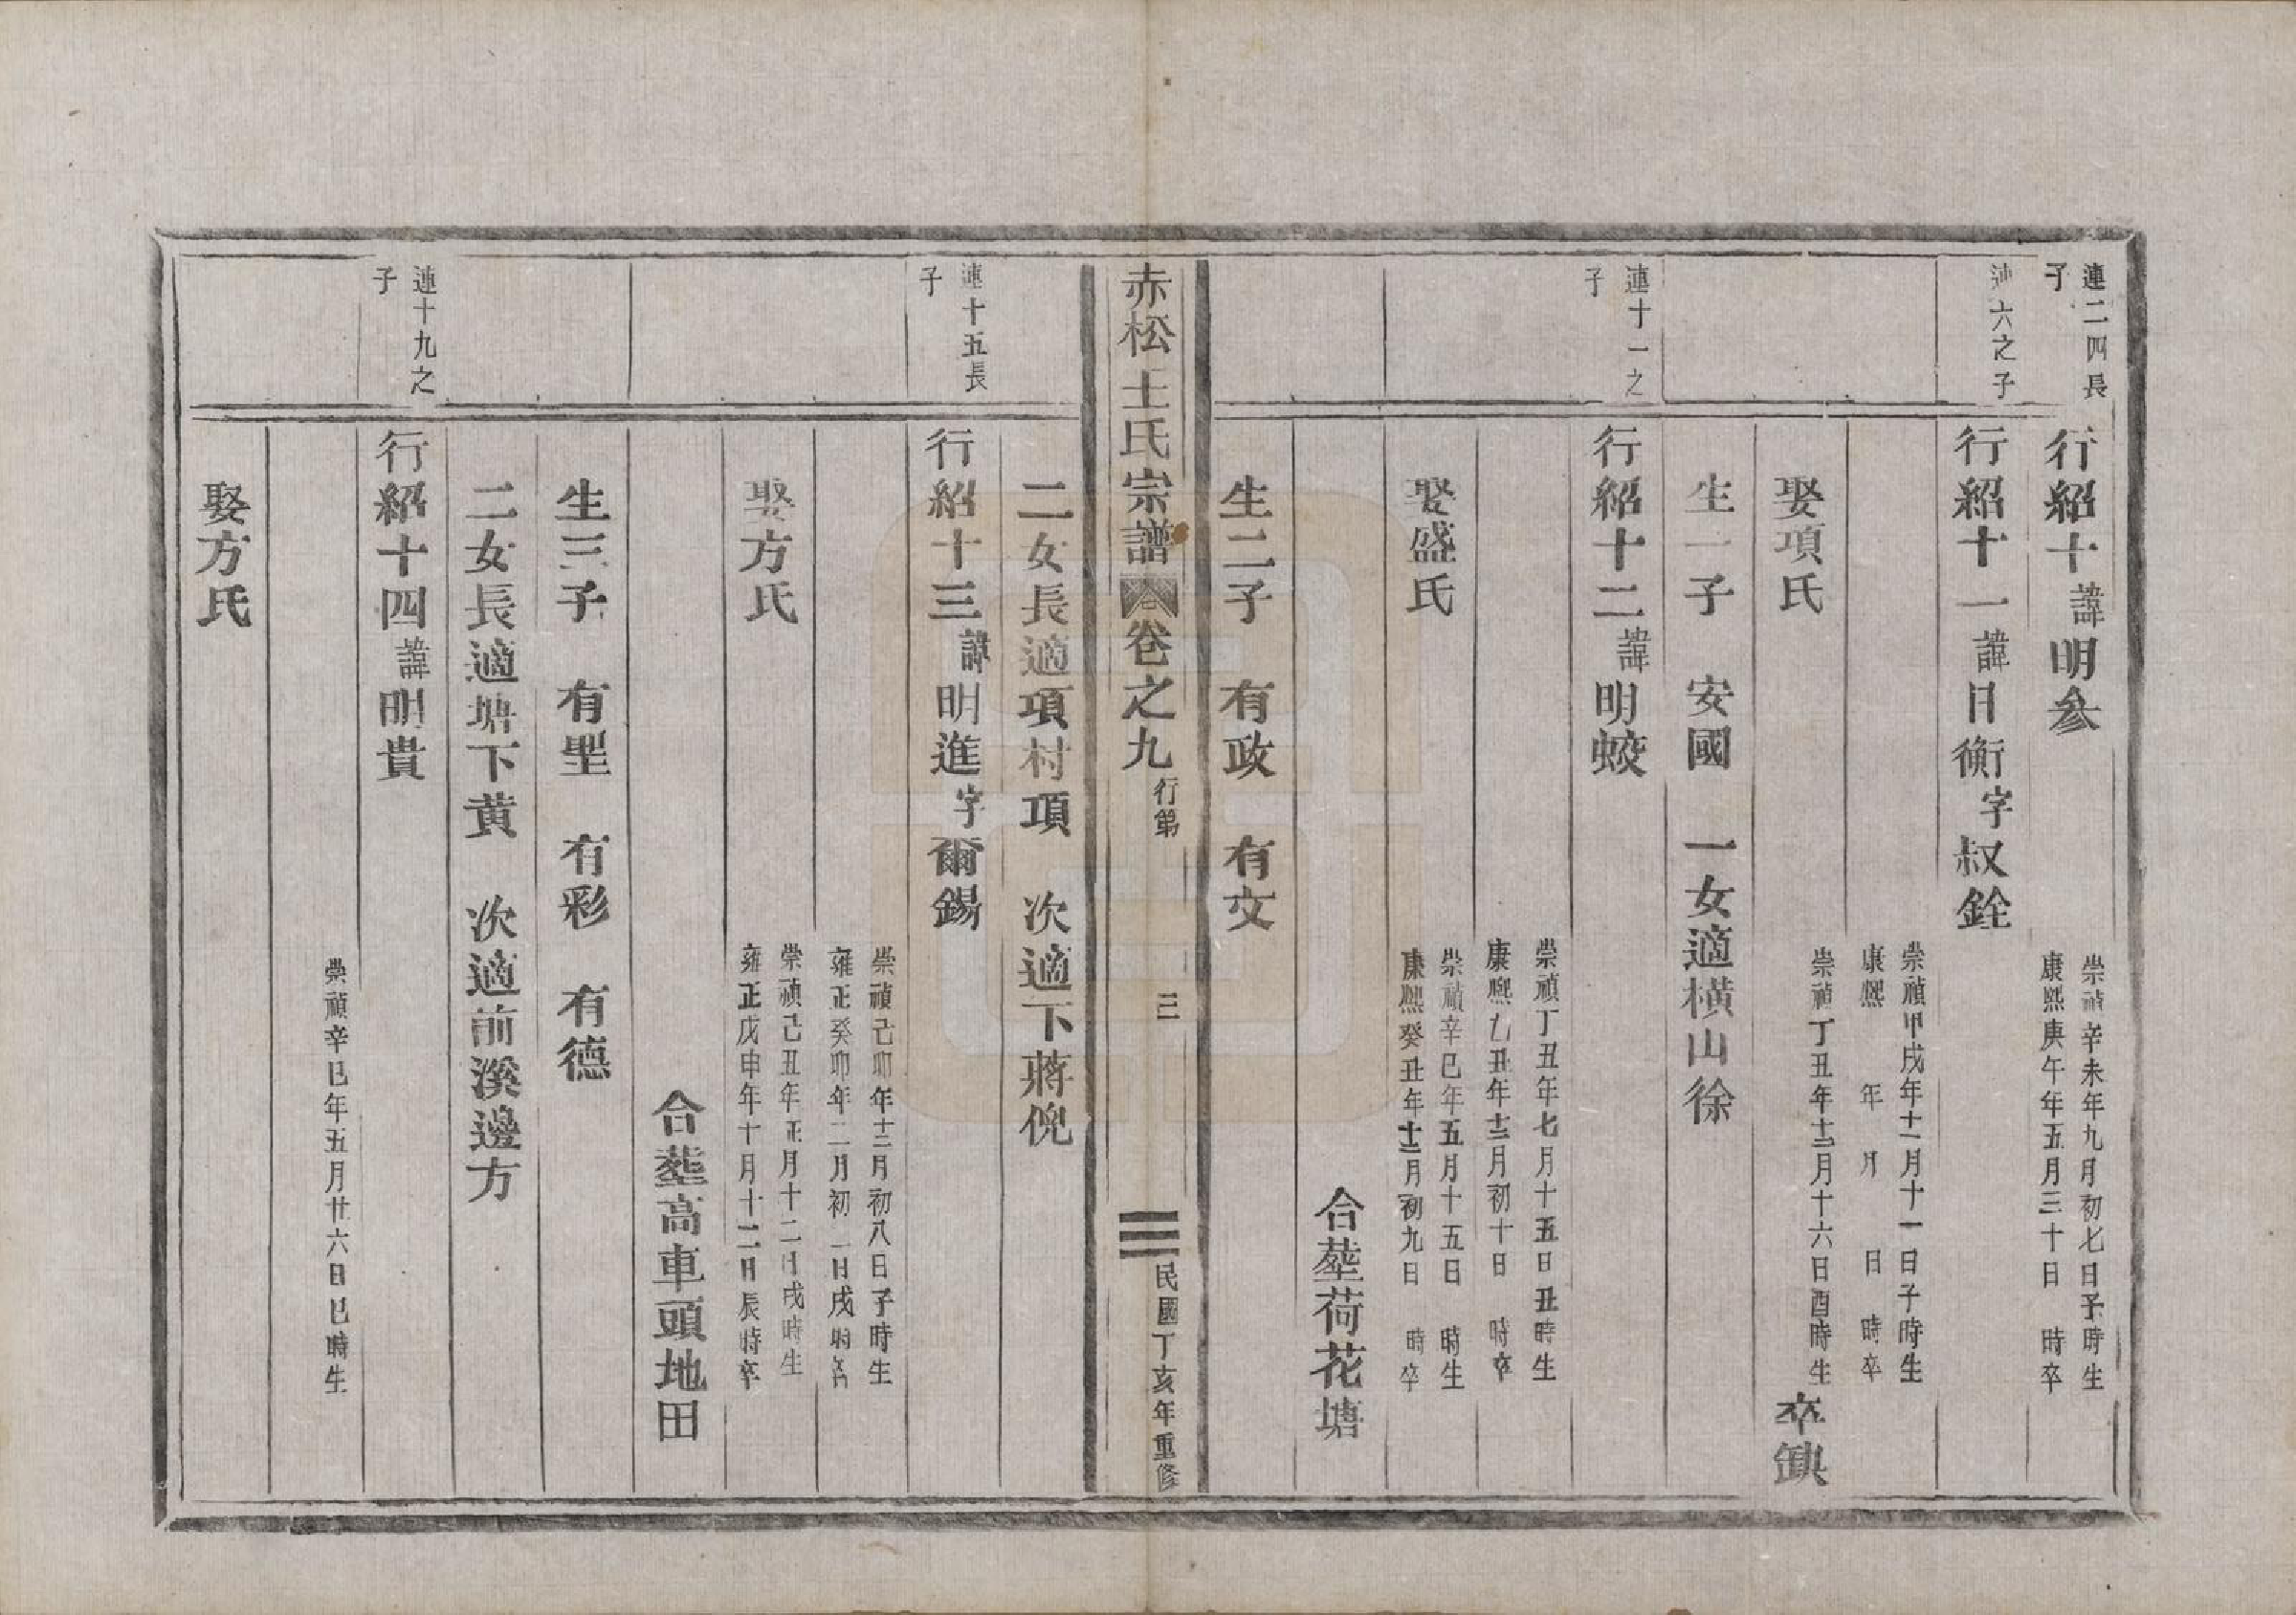 連二四長
子
行紹十諱明參
崇禎辛未年九月初七日子時生
康熙庚午年五月三十日 時卒
連六之子
行紹十一諱日衡字叔銓
崇禎甲戌年十一月十一日子時生
康熙 年 月 日 時卒
娶項氏
崇禎丁丑年十二月十六日酉時生
卒缺
生一子 安國 一女適橫山徐
連十一之
子
行紹十二諱明蛟
崇禎丁丑年七月十五日丑時生
康熙乙丑年十二月初十日 時卒
娶盛氏
崇禎辛巳年五月十五日 時生
康熙癸丑年十二月初九日 時卒
合塟荷花塘
生二子 有政 有文
赤松王氏宗譜 卷之九 行第 三 民國丁亥年重修
二女長適項村項 次適下蔣倪
連十五長
子
行紹十三諱明進字爾錫
崇禎己卯年十二月初八日子時生
雍正癸卯年二月初一日戌時卒
娶方氏
崇禎己丑年正月十二日戌時生
雍正戊申年十月十二日辰時卒
合塟高車頭地田
生三子 有聖 有彩 有德
二女長適塘下黃 次適前溪邊方
連十九之
子
行紹十四諱明貴
崇禎辛巳年五月廿六日巳時生
娶方氏